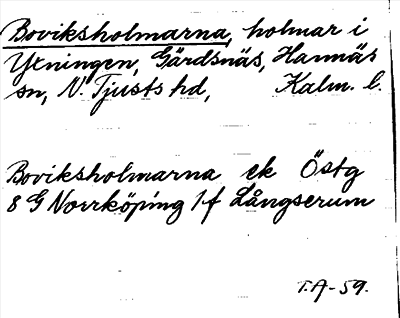 Boviksholmarna, holmar i
Yxningen, Gärdsnäs, Hannäs
sn, N. Tjusts hd, Kalm. l.
Boviksholmarna ek Östg
8 G Norrköping 1 f Långserum
T.A-59.